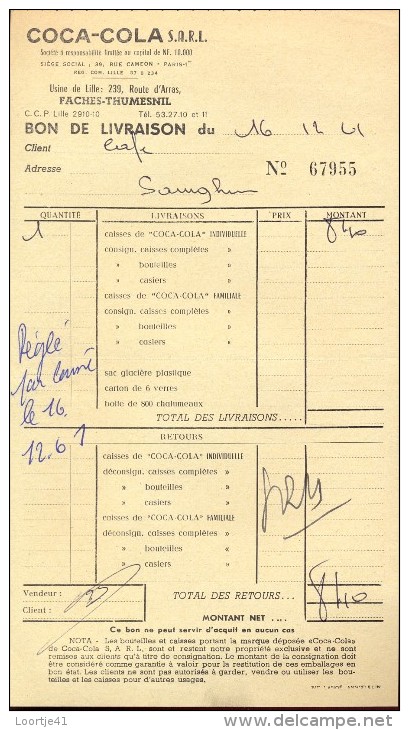 COCA-COLA S.A.R.L.
Société à responsabilité limitée au capital de NF. 10.000
SIÈGE SOCIAL : 39, RUE CAMBON - PARIS-1er
REG. COM. LILLE 57 B 234
Usine de Lille : 239, Route d'Arras,
FACHES-THUMESNIL
C.C.P. Lille 2910-10 Tél. 53.27.10 et 11
BON DE LIVRAISON du 16 12 61
Client Café
Adresse Nº 67955
Sainghin
QUANTITÉ LIVRAISONS PRIX MONTANT
1 caisses de "COCA-COLA" INDIVIDUELLE 8 40
consign. caisses complètes »
» bouteilles »
» casiers »
caisses de "COCA-COLA" FAMILIALE
consign. caisses complètes »
» bouteilles »
» casiers »
Réglé
par
le 16.
12.61
sac glacière plastique
carton de 6 verres
boite de 800 chalumeaux
TOTAL DES LIVRAISONS.....
RETOURS
caisses de "COCA-COLA" INDIVIDUELLE
déconsign. caisses complètes »
» bouteilles »
» casiers »
caisses de "COCA-COLA" FAMILIALE
déconsign. caisses complètes »
» bouteilles »
» casiers »
Vendeur : TOTAL DES RETOURS... 8 40
Client :
MONTANT NET ....
Ce bon ne peut servir d'acquit en aucun cas
NOTA - Les bouteilles et caisses portant la marque déposée «Coca-Cola»
de Coca-Cola S. A. R. L, sont et restent notre propriété exclusive et ne sont
remises aux clients qu'à titre de consignation. Le montant de la consignation doit
être considéré comme garantie à valoir pour la restitution de ces emballages en
bon état. Les clients ne sont pas autorisés à garder, vendre ou utiliser les bou-
teilles et les caisses pour d'autres usages.
Loortje41
www.delcampe.net